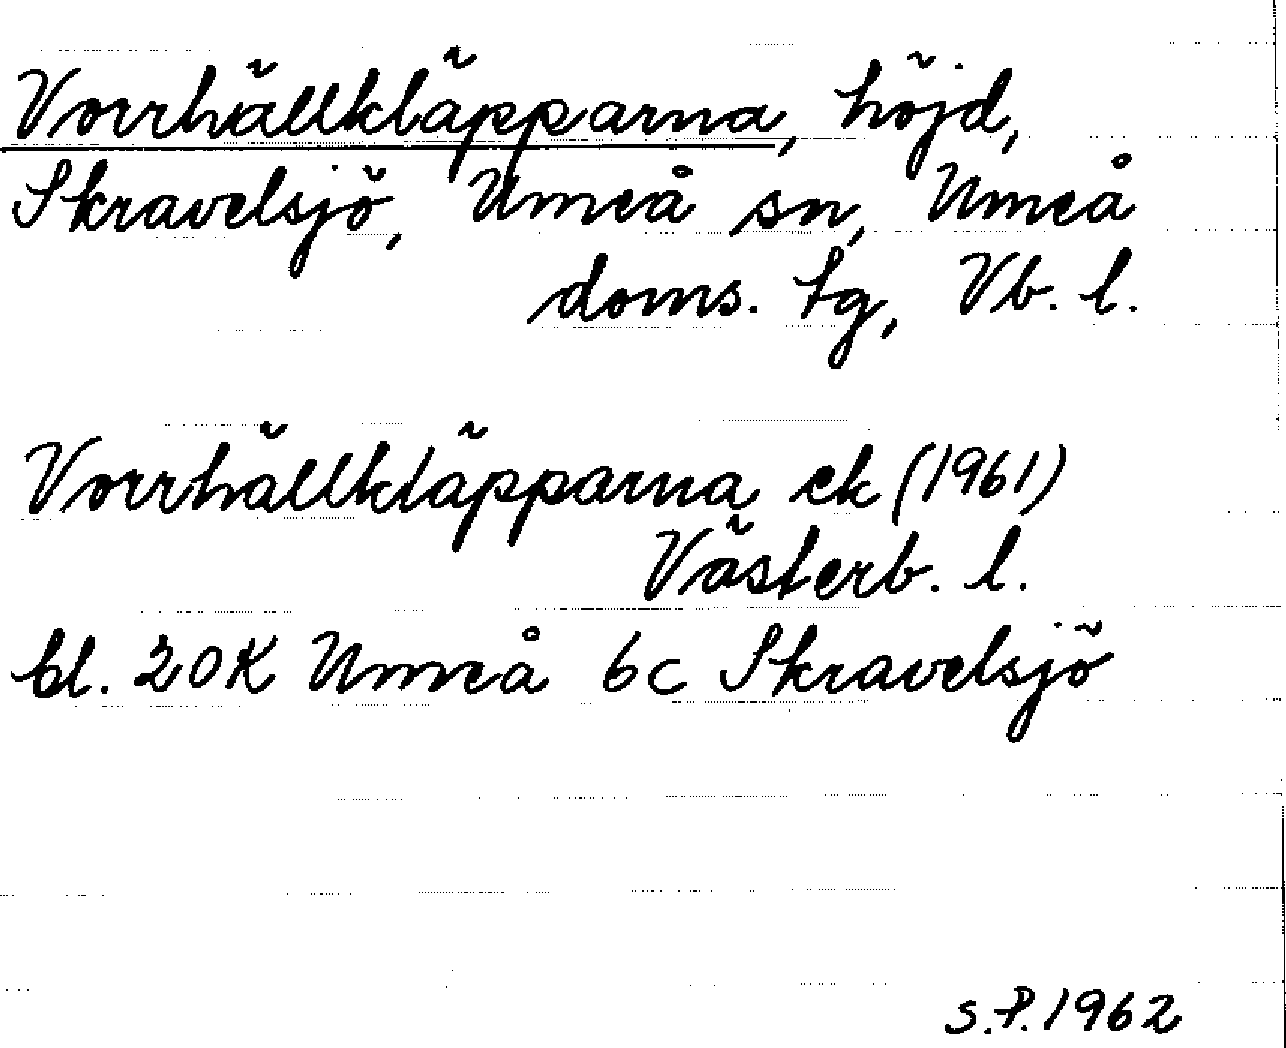 Vorrhällkläpparna, höjd,
Skravelsjö, Umeå sn, Umeå
doms. tg, Vb. l.
Vorrhällkläpparna ek (1961)
Västerb. l.
bl. 20K Umeå 6c Skravelsjö
S.P. 1962